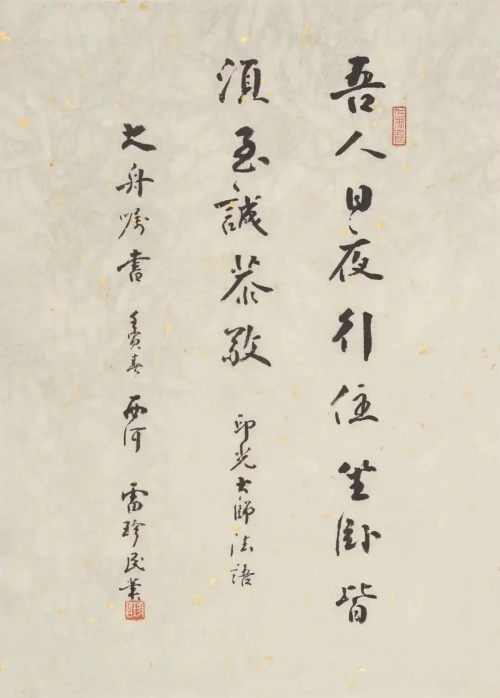 吾人日夜行住坐卧皆
須至誠恭敬 印光大師法語
舟嘱書 壬寅春 西河 雷珍民